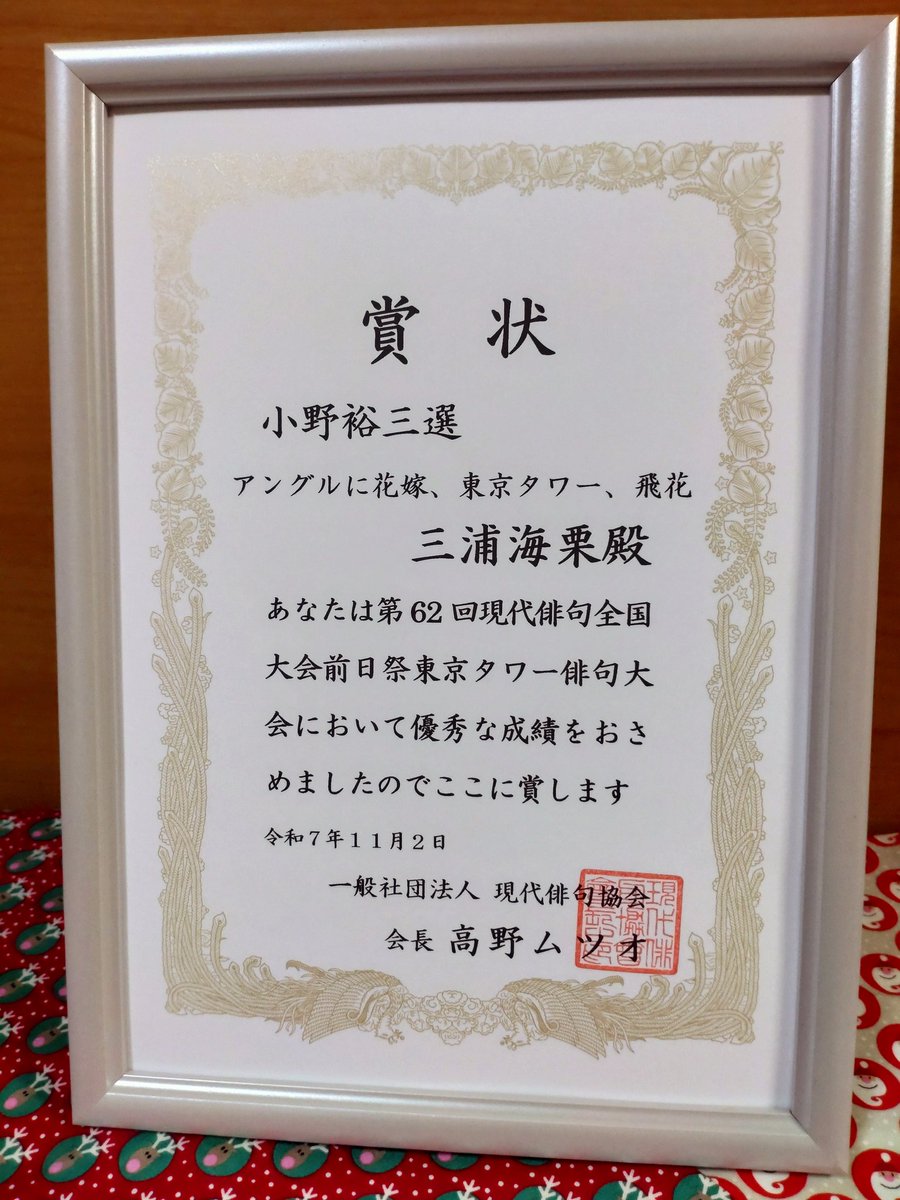 賞状
小野裕三選
アングルに花嫁、東京タワー、飛花
三浦海栗殿
あなたは第62回現代俳句全国
大会前日祭東京タワー俳句大
会において優秀な成績をおさ
めましたのでここに賞します
令和7年11月2日
一般社団法人 現代俳句協会
会長 高野ムツオ